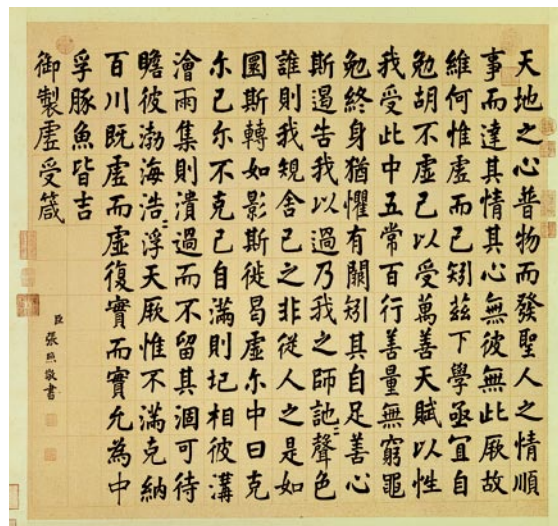 天地之心普物而發聖人之情順
事而達其情其心無彼無此厥故
維何惟虛而已矧茲下學亟宜自
勉胡不虛己以受萬善天賦以性
我受此中五常百行善量無窮黽
勉終身猶懼有闕矧其自足善心
斯遏告我以過乃我之師訑〻聲色
誰則我規舍己之非從人之是如
圜斯轉如影斯徙曷虛尒中曰克
尒己尒不克己自滿則圮相彼溝
澮雨集則潰過而不留其涸可待
瞻彼渤海浩〻浮天厥惟不滿克納
百川既虛而虛復實而實允為中
孚豚魚皆吉
御製虛受箴
臣張照敬書